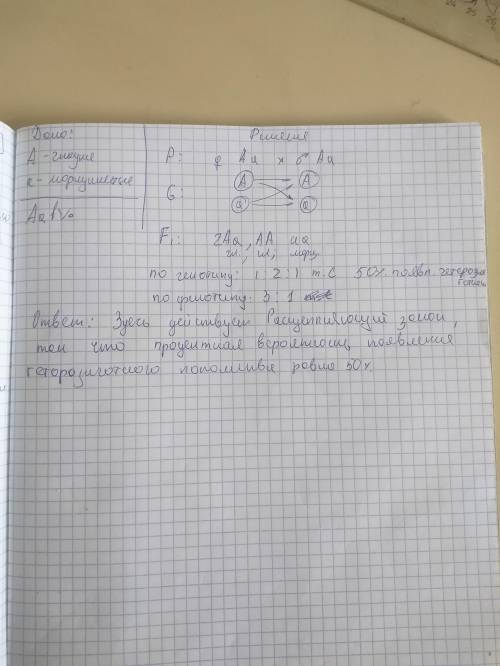 Дано:
А - гладкие
а - морщинистые
Аа f%
Решение
Р: ♀ Аа × ♂ Аа
G: А А
а а
F₁: 2Аа, АА аа
гл., гл., морщ.
по генотипу: 1:2:1 т.е 50% появл. гетерозиготы
по фенотипу: 3:1
Ответ: Здесь действует Расщепляющий закон,
так что процентная вероятность появления
гетерозиготного равна 50%.